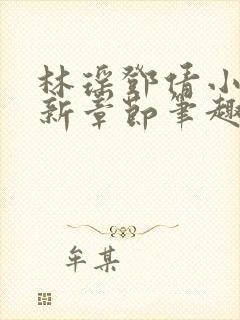 林瑶鄧倩小
新章節筆趣
牟某